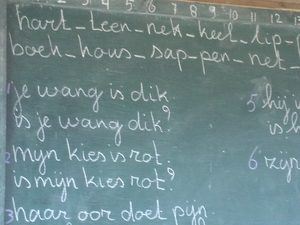 4 5 6 7 8 9 10 11 12
hart_teen_nek_keel_lip_
boek_hous_sap_pen_net_
1 je wang is dik
is je wang dik?
2 mijn kies is rot.
is mijn kies rot?
3 haar oor doet pijn.
5 hij
is h
6 zijn